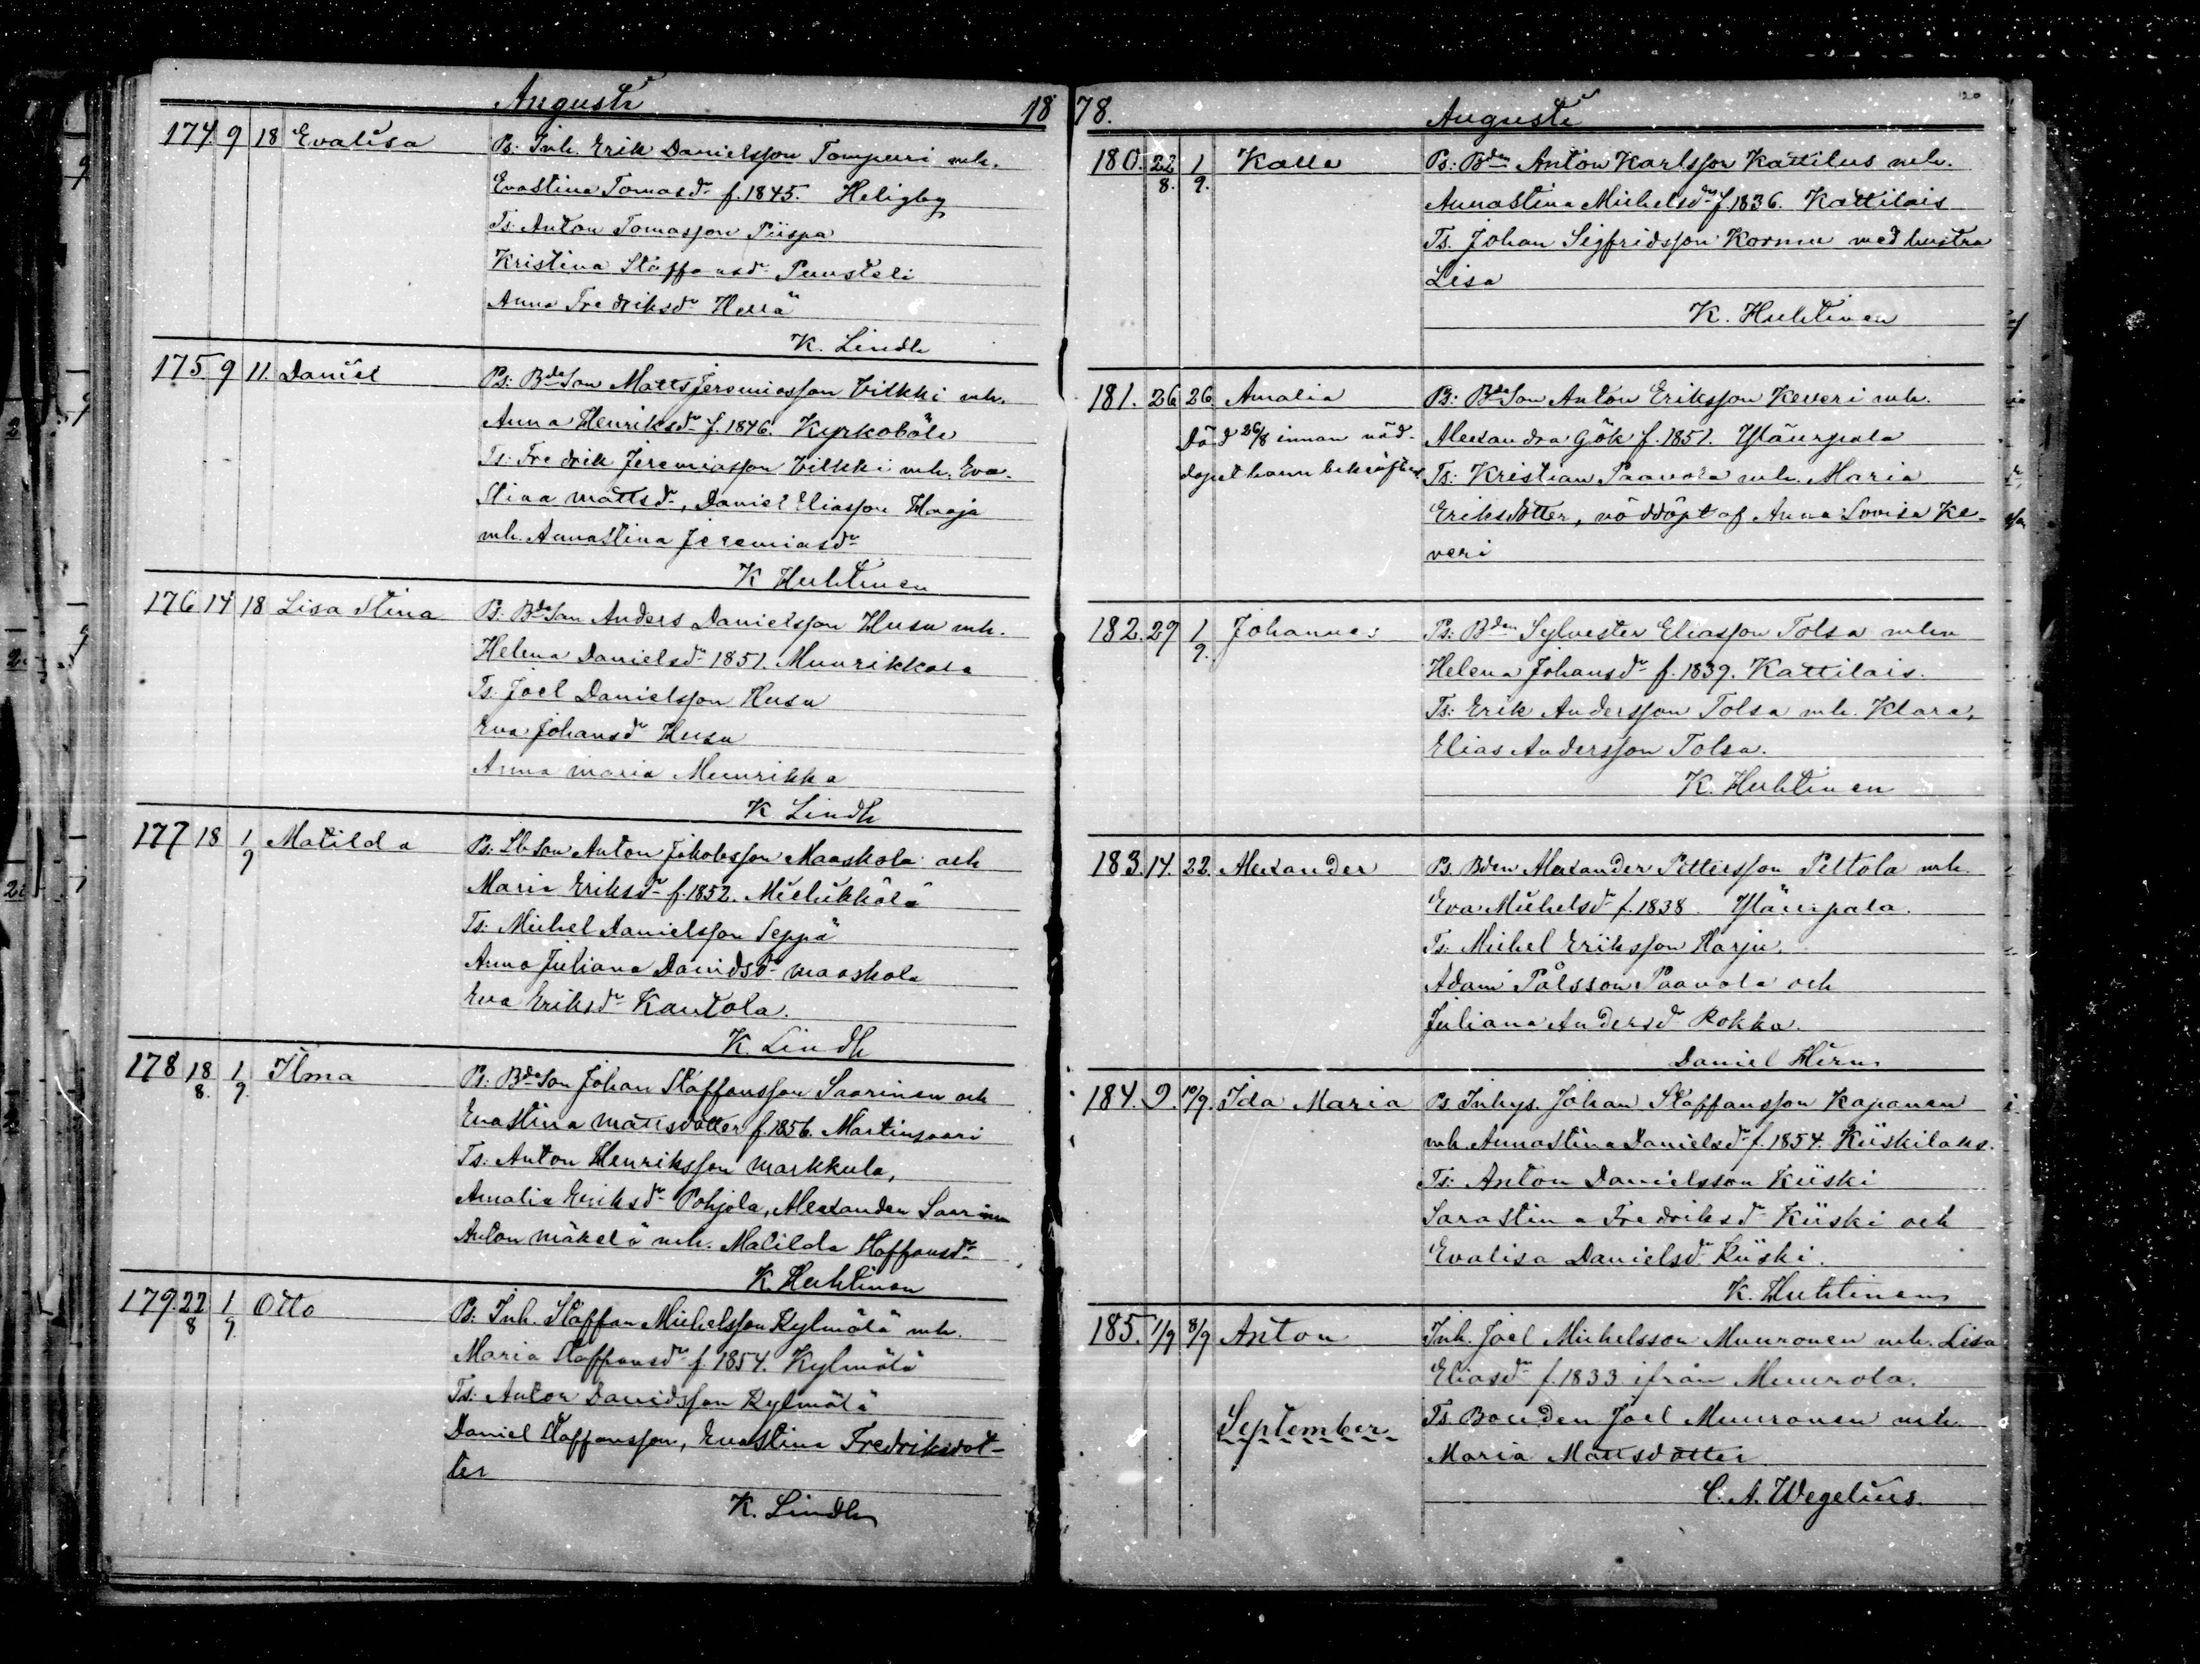 Augusti 18
174. 9 18 Evalisa Ps: Inh. Erik Danielsson Tompuri mh.
Evastina Tomasdr f. 1845. Heligby
Ts: Anton Tomasson Piispa
Kristina Staffansdr Puusteli
Anna Fredriksdr Herrä
K. Lindh
175. 9 11. Daniel Ps: BdeSon Matts Jeremiasson Vilkki mh.
Anna Henriksdr f. 1846. Kyrkoböle
Ts: Fredrik Jeremiasson Vilkki mh. Eva-
Stina mattsdr, Daniel Eliasson Haaja
mh. Annastina Jeremiasdr
K Huhtinen
176 14 18 Lisa Stina Ps: BdeSon Anders Danielsson Husu mh.
Helena Danielsdr 1851. Muurikkala
Ts: Joel Danielsson Husu
Eva Johansdr Husu
Anna maria Muurikka
K Lindh
177 18 1/9 Matilda Ps: LbSon Anton Jakobsson Maaskola och
Maria Eriksdr f. 1852. Miehikkälä
Ts: Michel Danielsson Seppä
Anna Juliana Davidsdr maaskola
Eva Eriksdr Kantola.
K. Lindh
178 18/8. 1/9. Ilma Ps: BdeSon Johan Staffansson Saarinen och
Evastina mattsdotter f. 1856. Martinsaari
Ts: Anton Henriksson markkula,
Amalia Eriksdr Pohjola, Alexander Saarinen
Anton mäkelä mh. Matilda Staffansdr
K. Huhtinen
179. 22/8 1/9. Otto Ps: Inh. Staffan Michelsson Kylmälä mh.
Maria Staffansdr f. 1854. Kylmälä
Ts: Anton Davidsson Kylmälä
Daniel Staffansson, Evastina Fredriksdot-
ter
K. Lindh
78. Augusti
180. 22/8. 1/9. Kalle Ps: Bden Anton Karlsson Kattilus mh.
Annastina Michelsdr f. 1836. Kattilais
Ts. Johan Sigfridsson Kormu med hustru
Lisa
K. Huhtinen
181. 26 26 Amalia Ps: BdeSon Anton Eriksson Keveri mh.
Död 26/8 innan nöd- Alexandra Gök f. 1851. Yläurpala
dopet hann bekräftas Ts: Kristian Paavola mh. Maria
Eriksdotter, nöddöpt af Anna Lovisa Ke-
veri
182. 29 1/9. Johannes Ps: Bden Sylvester Eliasson Tolsa mhu
Helena Johansdr f. 1839. Kattilais.
Ts: Erik Andersson Tolsa mh. Klara,
Elias Andersson Tolsa.
K. Huhtinen
183. 14. 22. Alexander Ps. Bden Alexander Pettersson Peltola mh.
Eva Michelsdr f. 1838. Yläurpala.
Ts: Michel Eriksson Harju.
Adam Pålsson Paavola och
Juliana Andersdr Rokka.
Daniel Hirn
184. 9. 10/9. Ida Maria Ps Inhys. Johan Staffansson Kaponen
mh. Annastina Danielsdr f. 1854. Kiiskilaks.
Ts: Anton Danielsson Kiiski
Sarastina Fredriksdr Kiiski och
Evalisa Danielsdr Kiiski.
K. Huhtinen
185. 1/9 8/9 Anton Inh. Joel Michelsson Muuronen mh. Lisa
Eliasdr f. 1833 ifrån Muurola.
Ts. Bonden Joel Muuronen mh.
September Maria Mattsdotter
C. A. Wegelius.